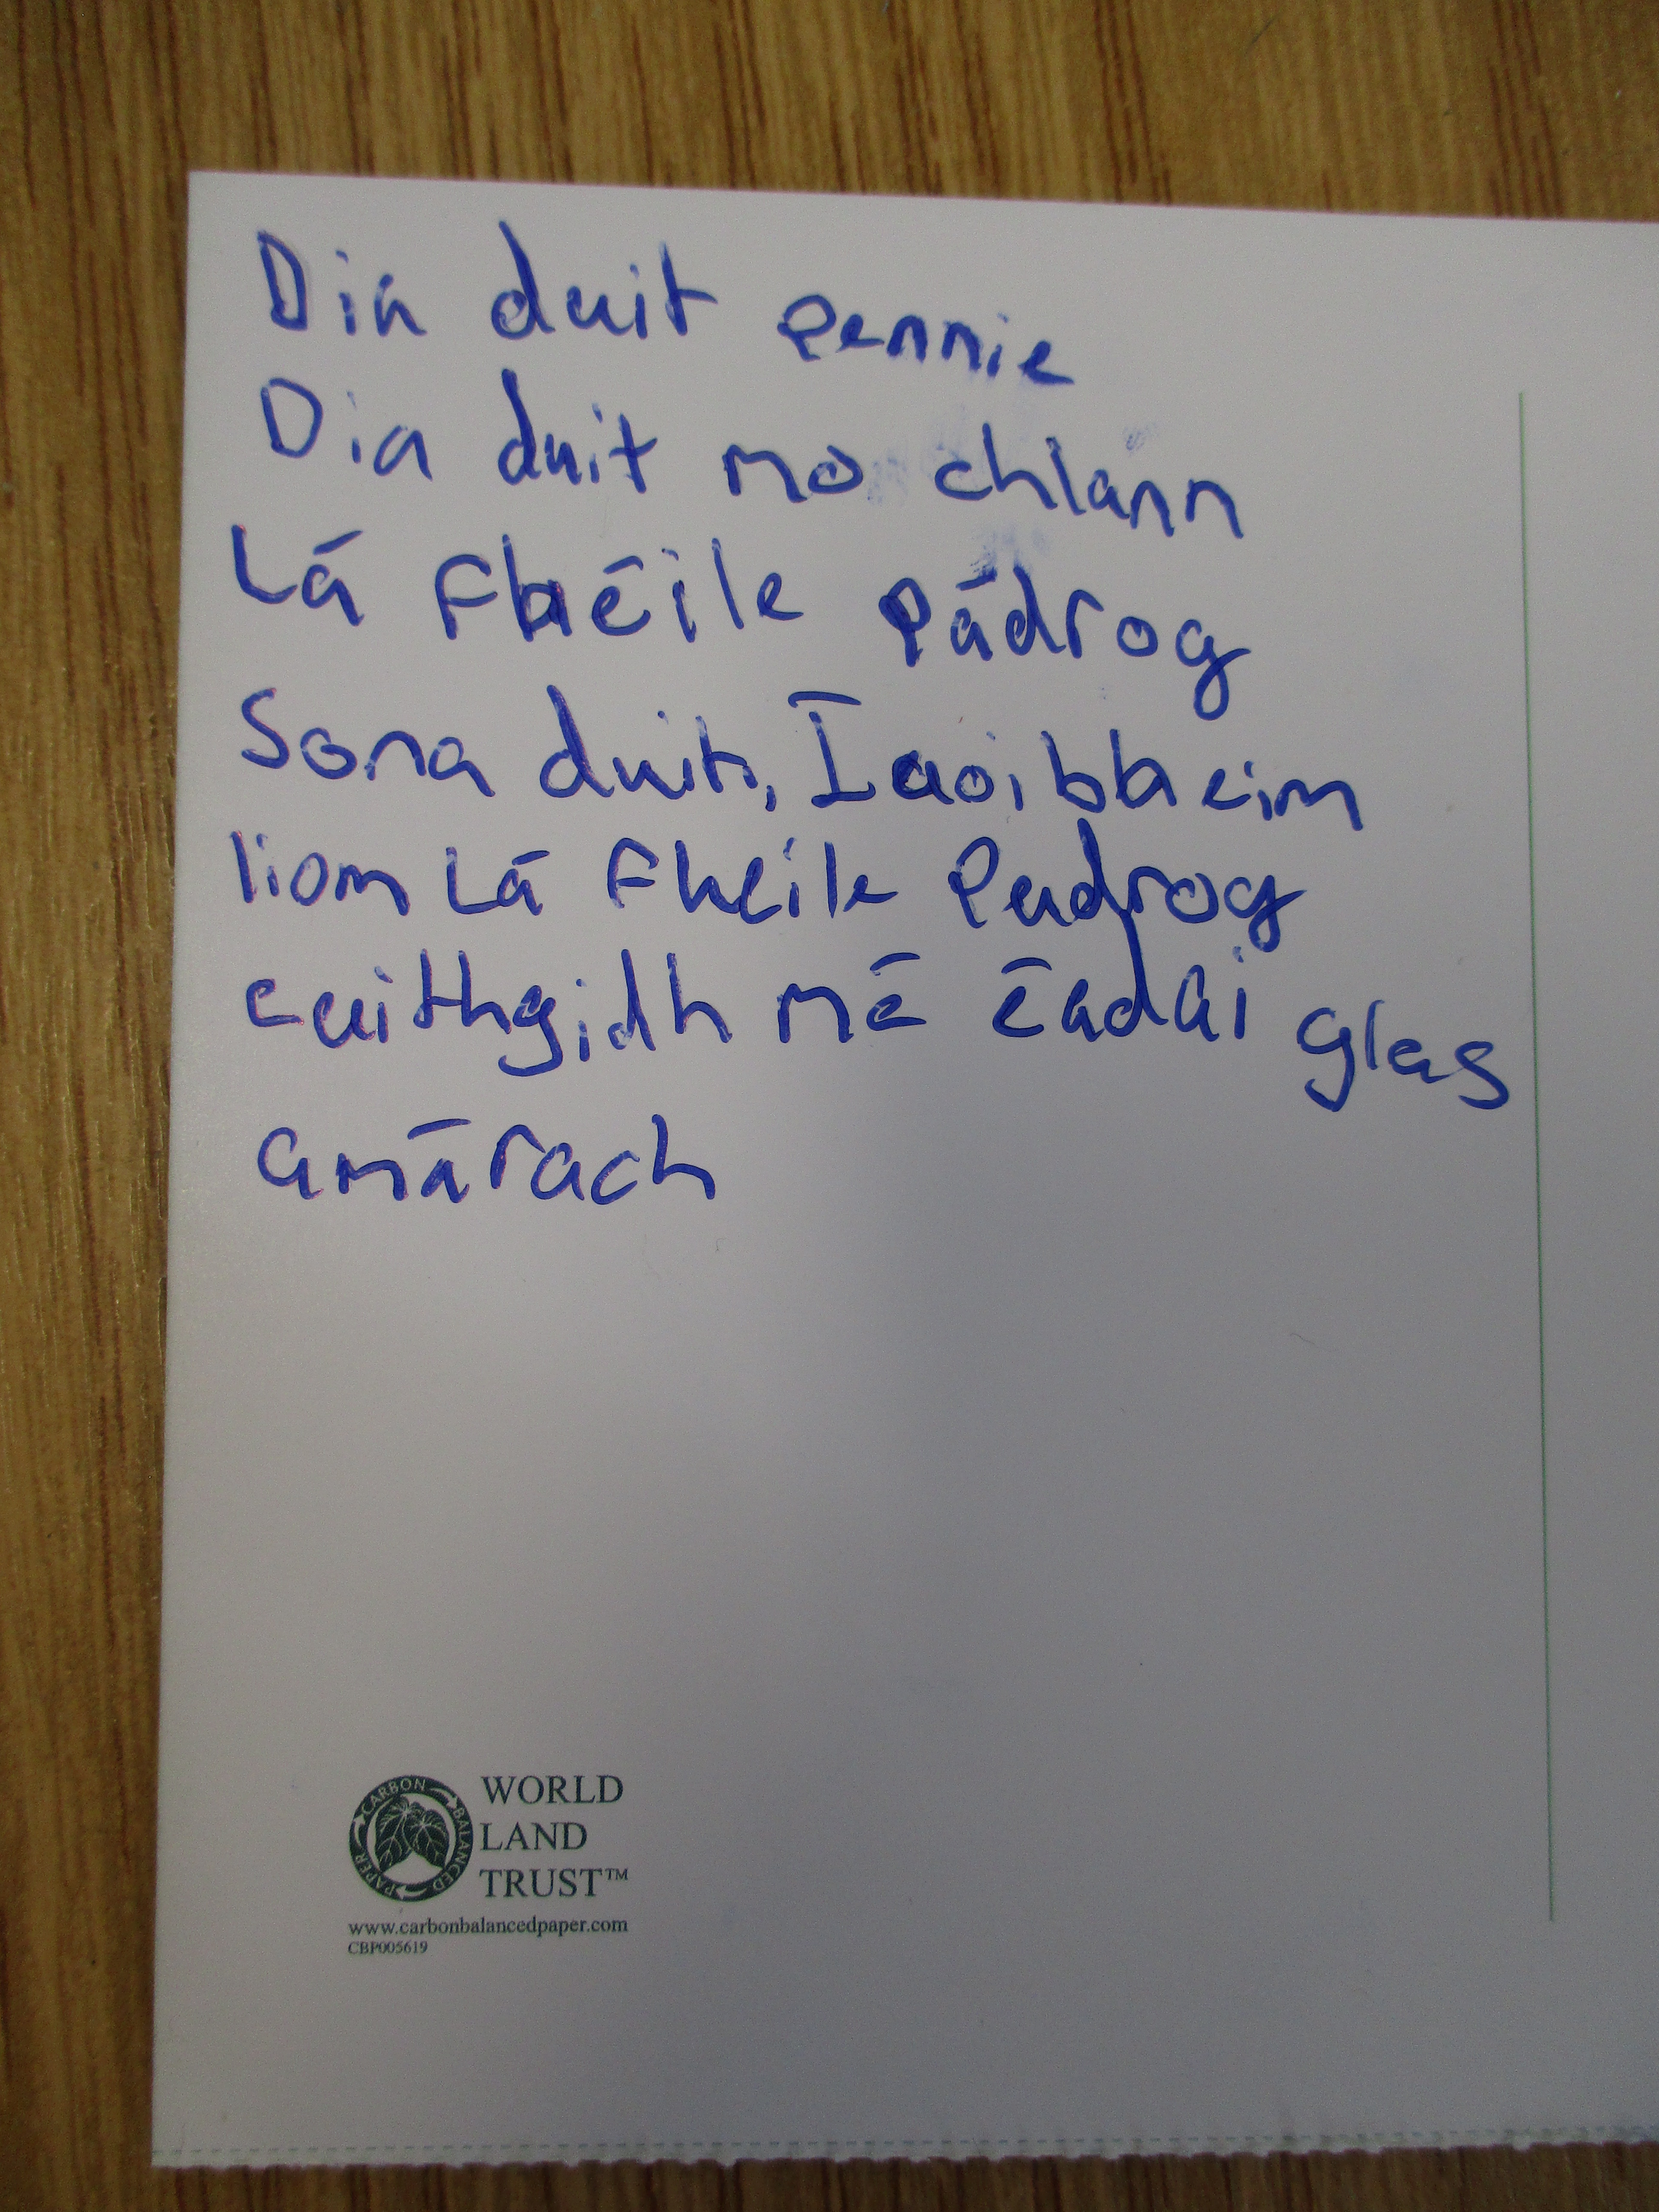 Dia duit pennie
Dia duit mo chlann
Lá Fhéile Pádrog
Sona duit, Iaoibheim
liom Lá Fheile Padrog
cuithgidh mē ēadai glas
amārach
CARBON BALANCED PAPER
WORLD
LAND
TRUST™
www.carbonbalancedpaper.com
CBP005619